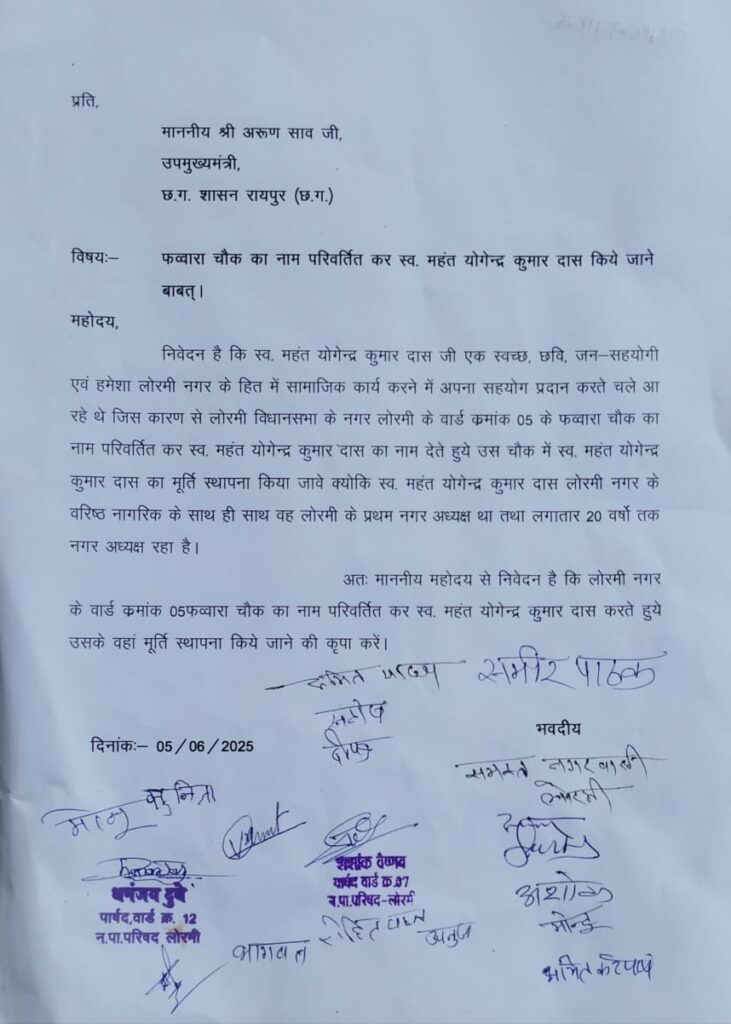 प्रति,
माननीय श्री अरूण साव जी,
उपमुख्यमंत्री,
छ.ग. शासन रायपुर (छ.ग.)
विषयः– फव्वारा चौक का नाम परिवर्तित कर स्व. महंत योगेन्द्र कुमार दास किये जाने
बाबत्।
महोदय,
निवेदन है कि स्व. महंत योगेन्द्र कुमार दास जी एक स्वच्छ, छवि, जन–सहयोगी
एवं हमेशा लोरमी नगर के हित में सामाजिक कार्य करने में अपना सहयोग प्रदान करते चले आ
रहे थे जिस कारण से लोरमी विधानसभा के नगर लोरमी के वार्ड कमांक 05 के फव्वारा चौक का
नाम परिवर्तित कर स्व. महंत योगेन्द्र कुमार दास का नाम देते हुये उस चौक में स्व. महंत योगेन्द्र
कुमार दास का मूर्ति स्थापना किया जावे क्योकि स्व. महंत योगेन्द्र कुमार दास लोरमी नगर के
वरिष्ठ नागरिक के साथ ही साथ वह लोरमी के प्रथम नगर अध्यक्ष था तथा लगातार 20 वर्षो तक
नगर अध्यक्ष रहा है।
अतः माननीय महोदय से निवेदन है कि लोरमी नगर
के वार्ड कमांक 05फव्वारा चौक का नाम परिवर्तित कर स्व. महंत योगेन्द्र कुमार दास करते हुये
उसके वहां मूर्ति स्थापना किये जाने की कृपा करें।
समीर पाठक
दिनांकः– 05/06/2025
भवदीय
समस्त नगरवासी
लोरमी
शशांक वैष्णव
पार्षद वार्ड क्र.07
न.पा.परिषद-लोरमी
धनंजय दुबे
पार्षद,वार्ड क्र. 12
न.पा.परिषद लोरमी
अशोक
भागवत